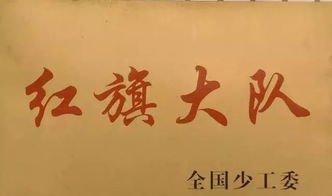 红旗大队
全国少工委